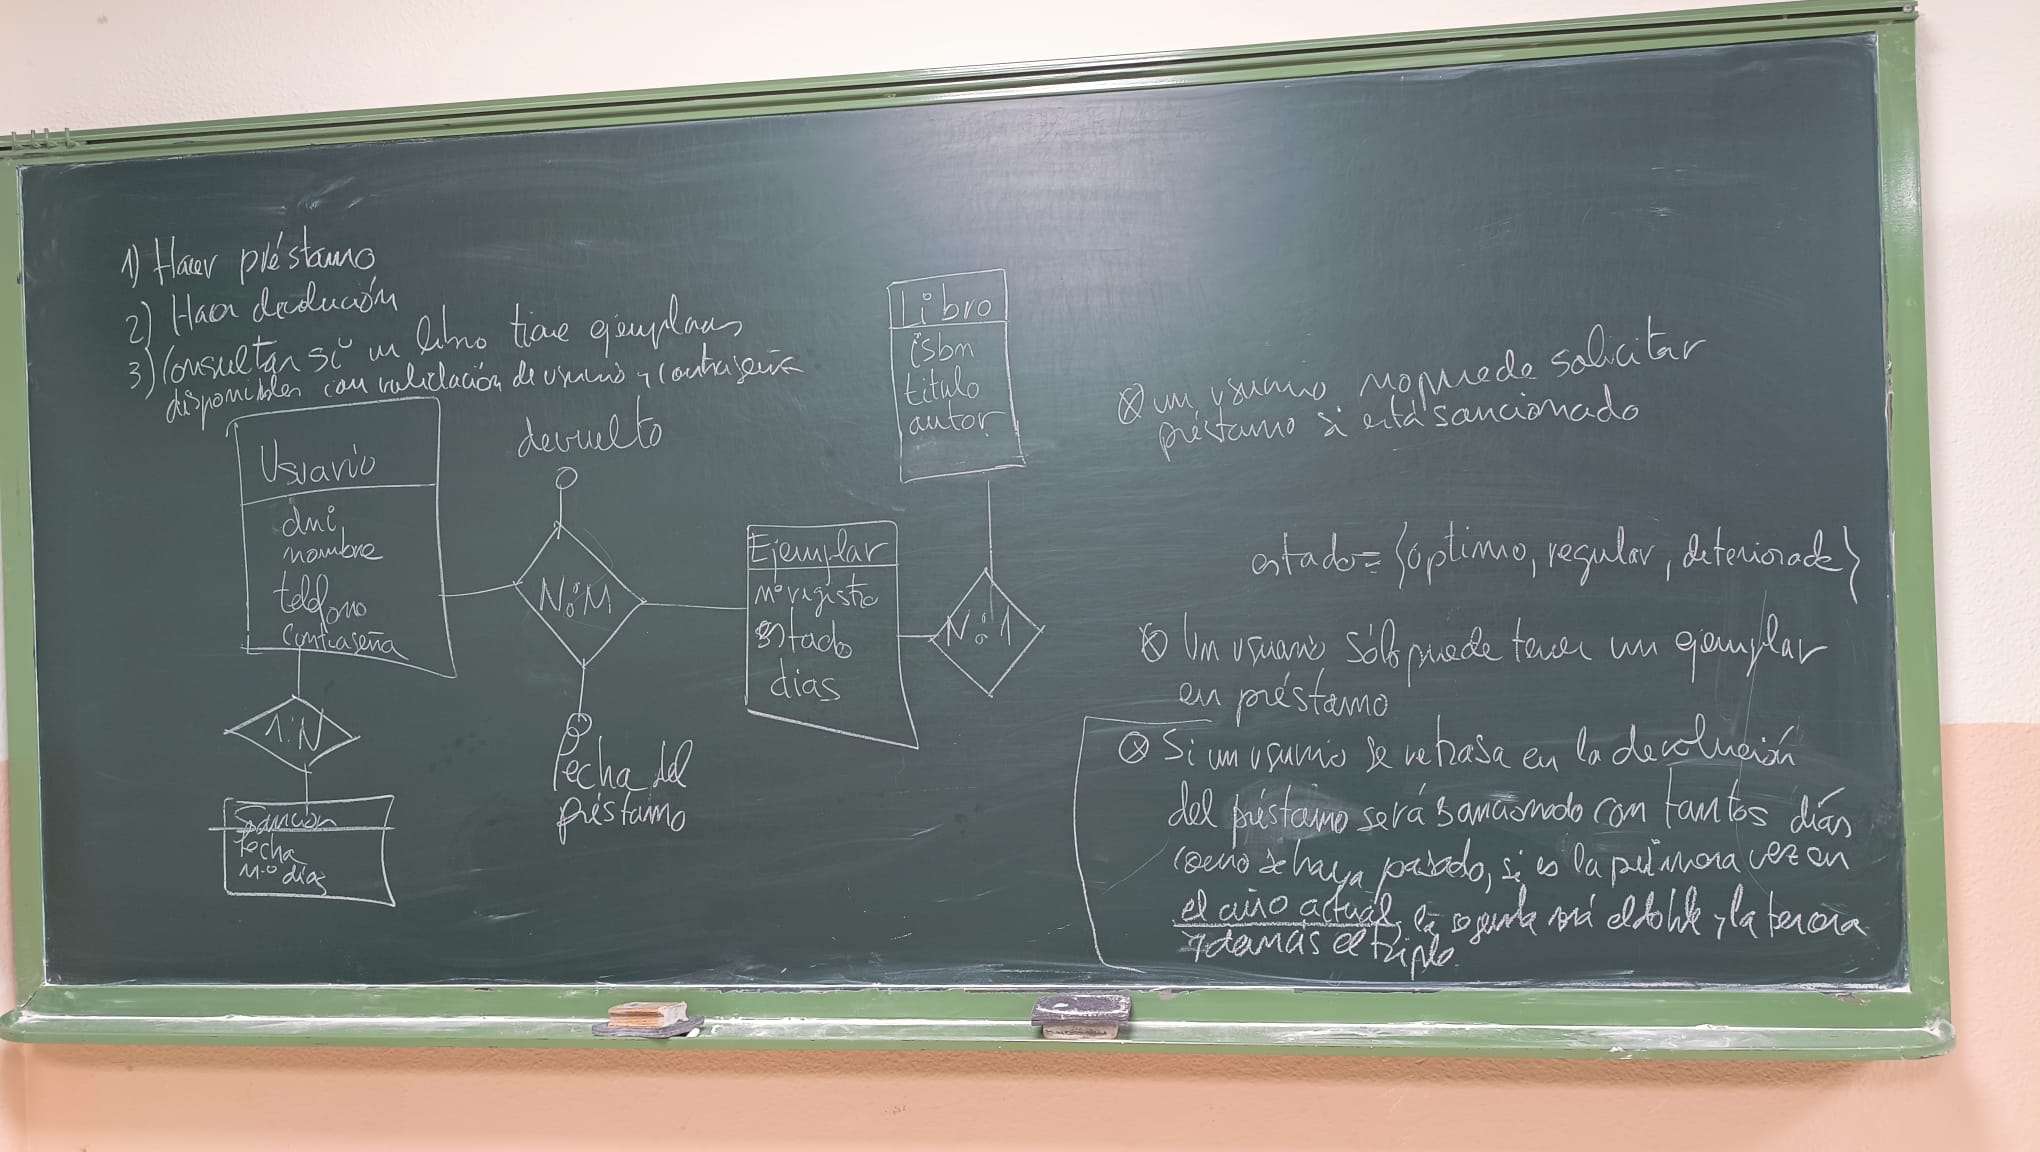 1) Hacer préstamo
2) Hacer devolución
3) Consultar si un libro tiene ejemplares
disponibles con validación de usuario y contraseña
Usuario
dni
nombre
teléfono
contraseña
1:N
Sanción
fecha
n.º días
devuelto
N:M
Fecha del
préstamo
Ejemplar
nº registro
estado
dias
N:1
Libro
isbn
titulo
autor
un usuario no puede solicitar
préstamo si está sancionado
estado = {óptimo, regular, deteriorado}
Un usuario sólo puede tener un ejemplar
en préstamo
Si un usuario se retrasa en la devolución
del préstamo será sancionado con tantos días
como se haya pasado, si es la primera vez en
el año actual, la segunda será el doble y la tercera
y demás el triple.